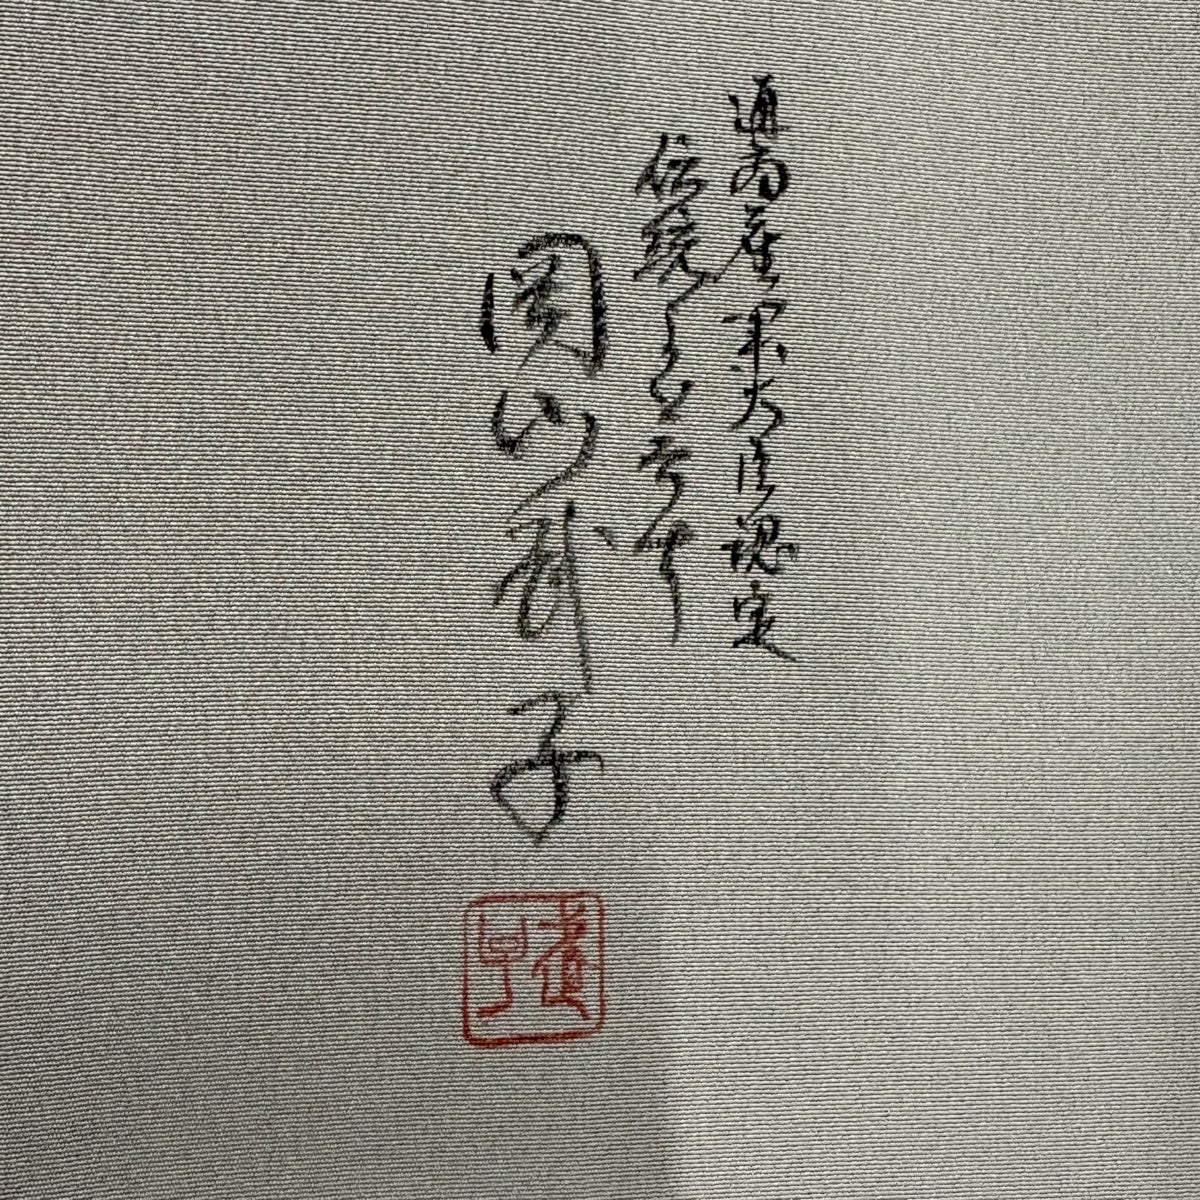 通商産業大臣認定
伝統工芸士
関山武子